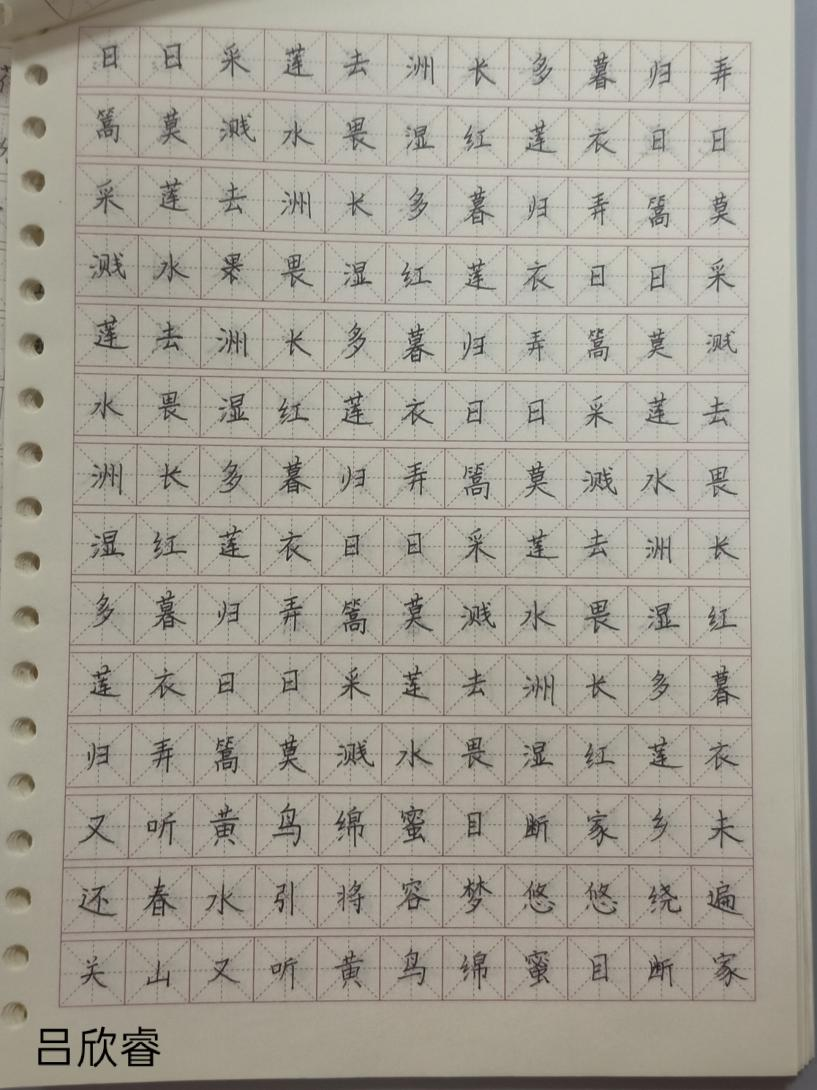 日日采莲去洲长多暮归弄
篙莫溅水畏湿红莲衣日日
采莲去洲长多暮归弄篙莫
溅水畏湿红莲衣日日采
莲去洲长多暮归弄篙莫溅
水畏湿红莲衣日日采莲去
洲长多暮归弄篙莫溅水畏
湿红莲衣日日采莲去洲长
多暮归弄篙莫溅水畏湿红
莲衣日日采莲去洲长多暮
归弄篙莫溅水畏湿红莲衣
又听黄鸟绵蜜目断家乡未
还春水引将容梦悠悠绕遍
关山又听黄鸟绵蜜目断家
吕欣睿